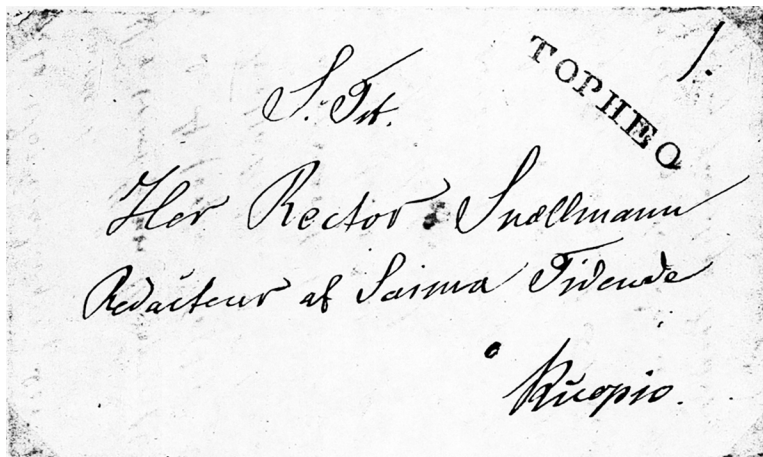 1.
ТОРНЕО
S. Tit.
Her Rector Snællmann
Redacteur af Saima Tidende
Kuopio.